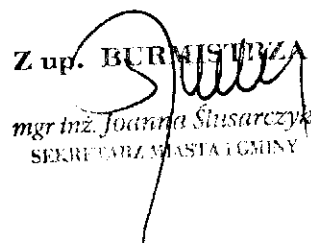 Z up. BURMISTRZA
mgr inż. Joanna Ślusarczyk
SEKRETARZ MIASTA i GMINY